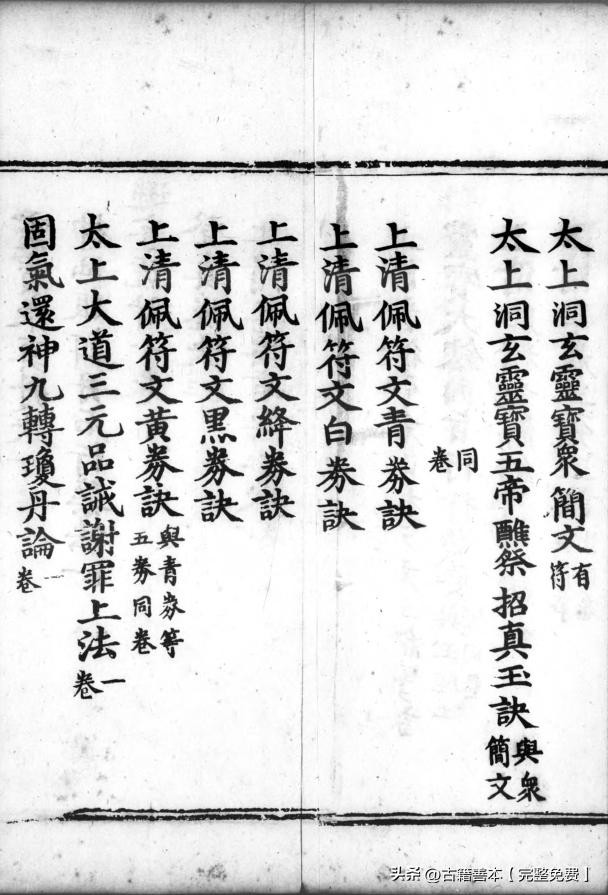 太上洞玄靈寶衆簡文有符
太上洞玄靈寶五帝醮祭招真玉訣與衆簡文
同卷
上清佩符文青券訣
上清佩符文白券訣
上清佩符文絳券訣
上清佩符文黑券訣
上清佩符文黃券訣與青券等五券同卷
太上大道三元品誡謝罪上法一卷
固氣還神九轉瓊丹論一卷
头条 @古籍善本【完整免费】